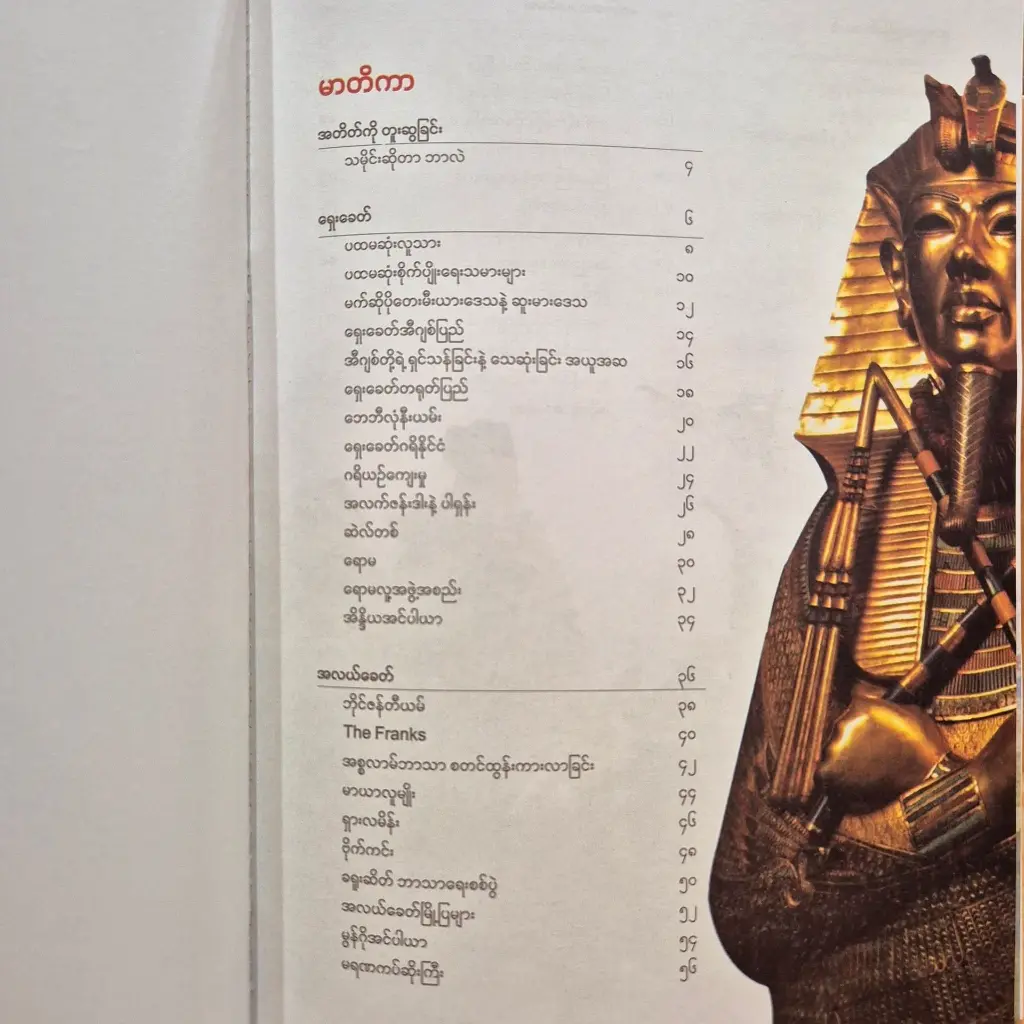 မာတိကာ
အတိတ်ကို တူးဆွခြင်း
သမိုင်းဆိုတာ ဘာလဲ ၄
ရှေးခေတ် ၆
ပထမဆုံးလူသား ၈
ပထမဆုံးစိုက်ပျိုးရေးသမားများ ၁၀
မက်ဆိုပိုတေးမီးယားဒေသနဲ့ ဆူးမားဒေသ ၁၂
ရှေးခေတ်အီဂျစ်ပြည် ၁၄
အီဂျစ်တို့ရဲ့ ရှင်သန်ခြင်းနဲ့ သေဆုံးခြင်း အယူအဆ ၁၆
ရှေးခေတ်တရုတ်ပြည် ၁၈
ဘေဘီလုံနီးယမ်း ၂၀
ရှေးခေတ်ဂရိနိုင်ငံ ၂၂
ဂရိယဉ်ကျေးမှု ၂၄
အလက်ဇန်းဒါးနဲ့ ပါရှန်း ၂၆
ဆဲလ်တစ် ၂၈
ရောမ ၃၀
ရောမလူ့အဖွဲ့အစည်း ၃၂
အိန္ဒိယအင်ပါယာ ၃၄
အလယ်ခေတ် ၃၆
ဘိုင်ဇန်တီယမ် ၃၈
The Franks ၄၀
အစ္စလာမ်ဘာသာ စတင်ထွန်းကားလာခြင်း ၄၂
မာယာလူမျိုး ၄၄
ရှားလမိန်း ၄၆
ဗိုက်ကင်း ၄၈
ခရူးဆိတ် ဘာသာရေးစစ်ပွဲ ၅၀
အလယ်ခေတ်မြို့ပြများ ၅၂
မွန်ဂိုအင်ပါယာ ၅၄
မရဏကပ်ဆိုးကြီး ၅၆